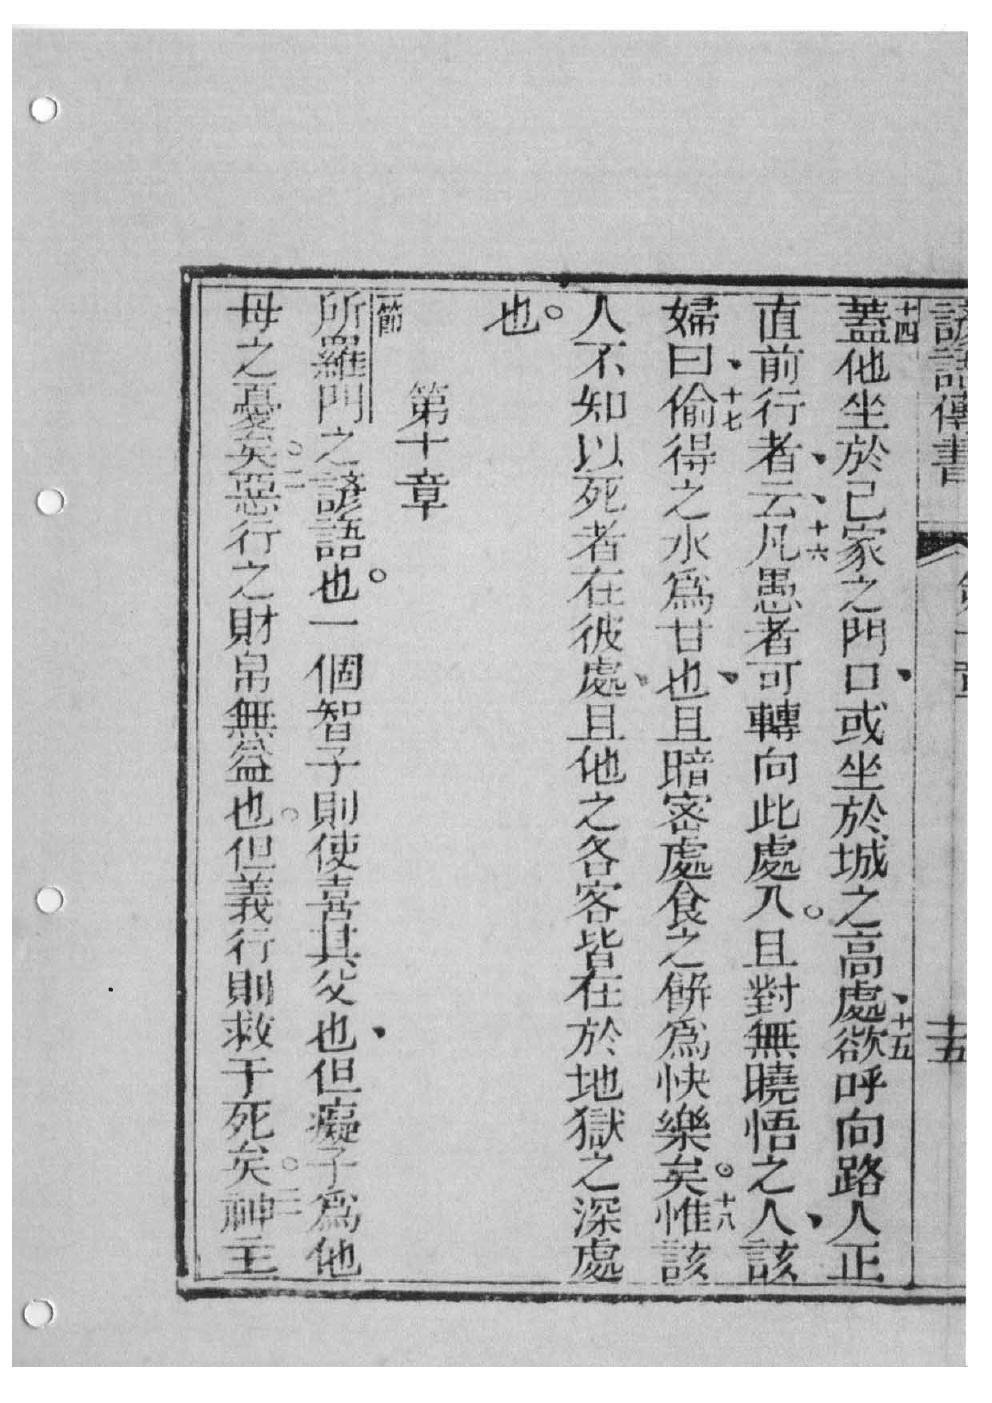 諺語傳書 十五
十四蓋他坐於己家之門口、或坐於城之高處、十五欲呼向路人正
直前行者、云、十六凡愚者可轉向此處入。且對無曉悟之人、該
婦曰、十七偷得之水為甘也、且暗密處食之餅為快樂矣。十八惟該
人不知以死者在彼處、且他之各客皆在於地獄之深處
也。
第十章
一節所羅門之諺語也。一個智子則使喜其父也、但癡子為他
母之憂矣。二惡行之財帛無益也。但義行則救于死矣。三神主